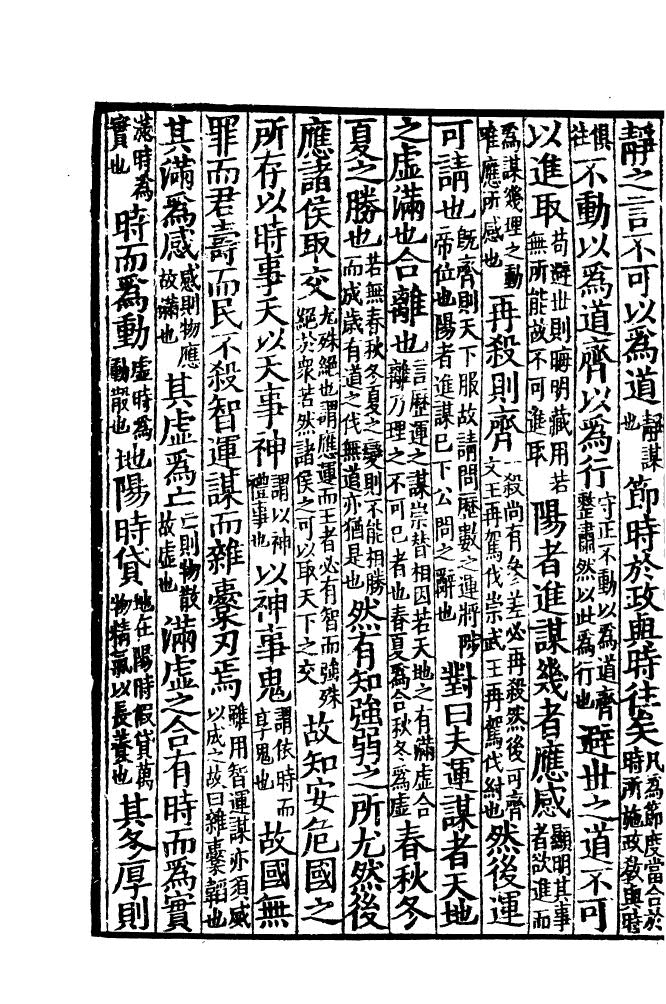 靜之言不可以爲道靜謀也節時於政與時往矣凡爲節度當合於時所施政敎與時
俱往不動以爲道齊以爲行守正不動以爲道齊整肅然以此爲行也避世之道不可
以進取苟避世則晦明藏用若無所能故不可進取陽者進謀幾者應感顯明其事者欲進而
爲謀幾理之動唯應所感也再殺則齊一殺尚有參差必再殺然後可齊文王再駕伐崇武王再駕伐紂也然後運
可請也旣齊則天下服故請問歷數之運將陟帝位也陽者進謀已下公問之辭也對曰夫運謀者天地
之虛滿也合離也言歷運之謀崇替相因若天地之有滿虛合離乃理之不可已者也春夏爲合秋冬爲虛春秋冬
夏之勝也若無春秋冬夏之變則不能相勝而成歲有道之伐無道亦猶是也然有知強弱之所尤然後
應諸侯取交尤殊絕也謂應運而王者必有智而強殊絕於衆若然諸侯之可以取天下之交故知安危國之
所存以時事天以天事神謂以神禮事也以神事鬼謂依時而享鬼也故國無
罪而君壽而民不殺智運謀而雜櫜刃焉雖用智運謀亦須威以成之故曰雜櫜韜也
其滿爲感感則物應故滿也其虛爲亡亡則物散故虛也滿虛之合有時而爲實
滿時爲實也時而爲動虛時爲動散也地陽時貸地在陽時假貸萬物精氣以長養也其冬厚則